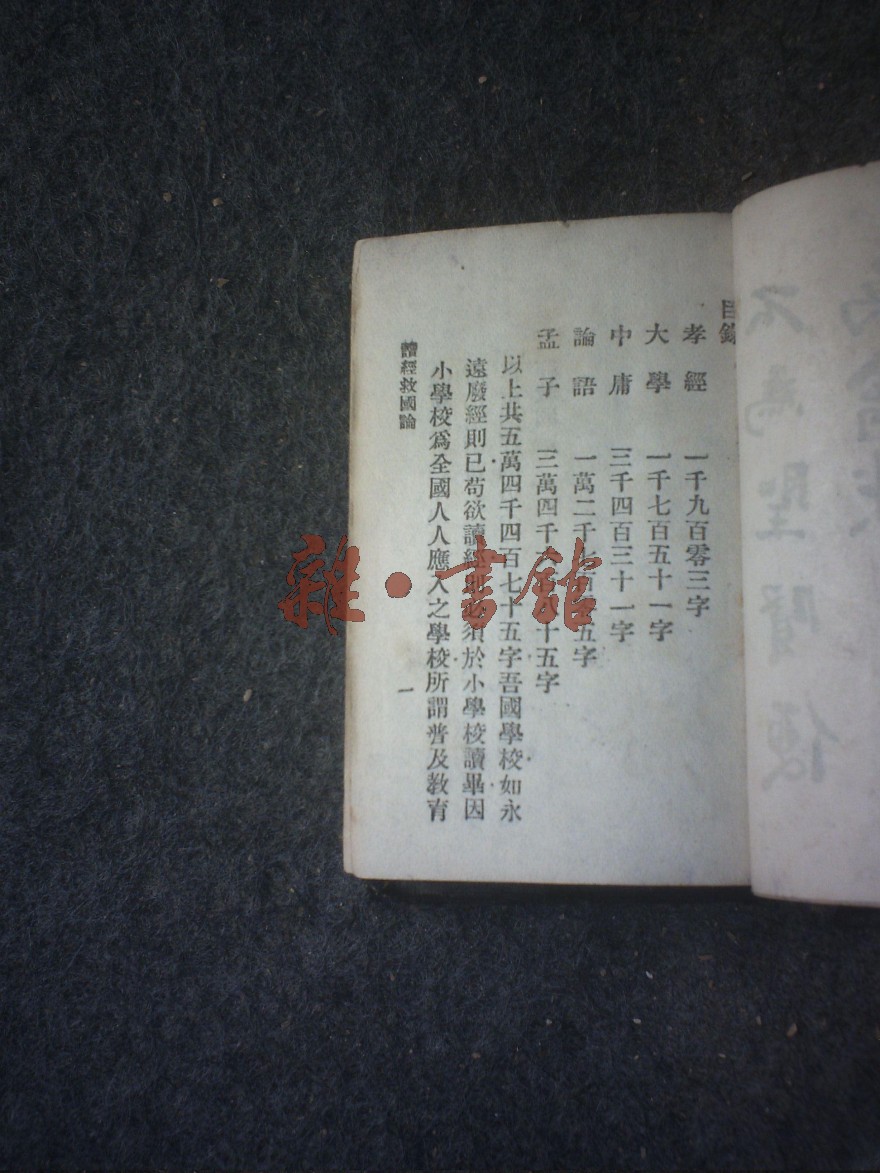 目錄
孝經 一千九百零三字
大學 一千七百五十一字
中庸 三千四百三十一字
論語 一萬二千七百零五字
孟子 三萬四千六百八十五字
以上共五萬四千四百七十五字吾國學校如永
遠廢經則已苟欲讀經則必須於小學校讀畢因
小學校爲全國人人應入之學校所謂普及教育
讀經救國論
一
雜·書館